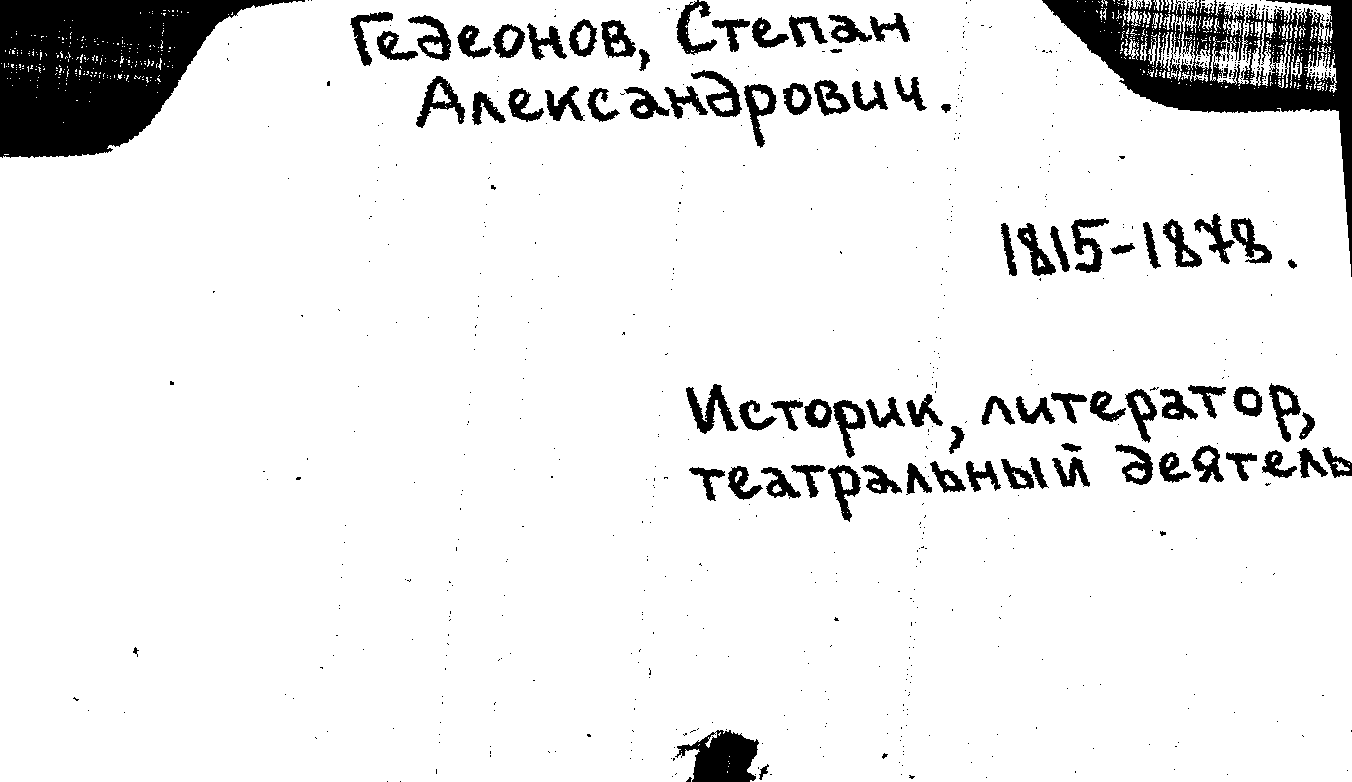 Гедеонов, Степан
Александрович.
1815-1878.
Историк, литератор,
театральный деятель